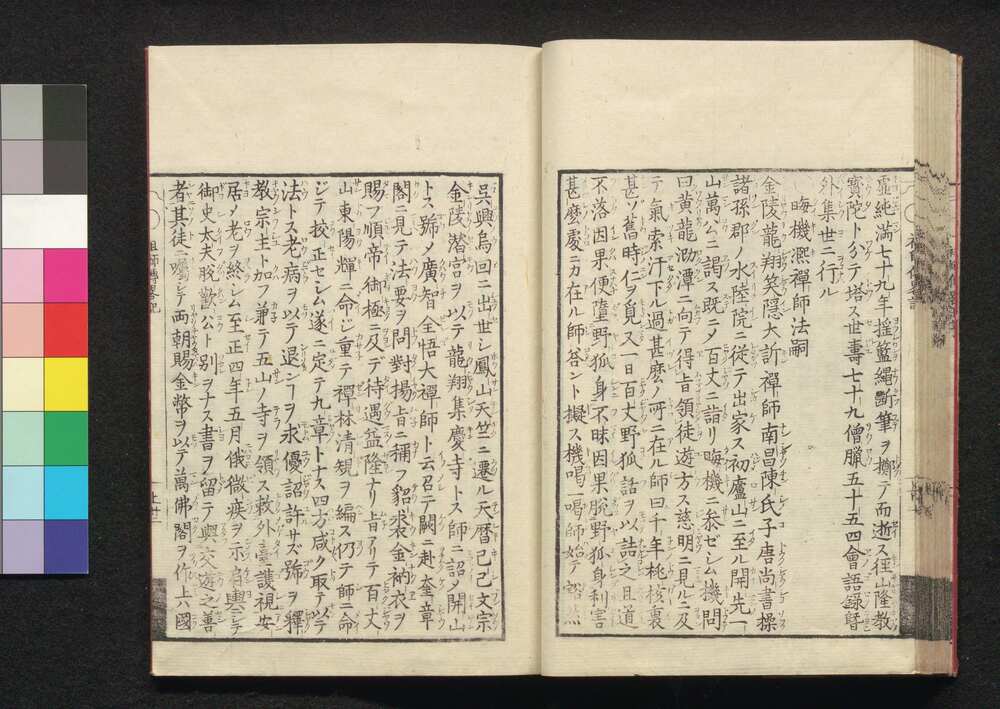 虚純満七十九年揺籃繩斷筆ヲ擲テ而逝ス徑山隆教
寳陀ト分テ塔ス世壽七十九僧臘五十五四會語録曁
外集世ニ行ル
晦機熈禪師法嗣
金陵龍翔笑隱大訢禪師南昌陳氏子唐尚書操
諸孫郡ノ水陸院ニ從テ出家ス初廬山ニ至ル開先一
山萬公ニ謁ス既テ百丈ニ詣リ晦機ニ参ゼシム機問
曰黄龍泐潭ニ向テ得㫖領徒遊方ス慈明ニ見ルニ及
テ氣索汗下ル過甚麽ノ所ニ在ル師曰千年桃核裏
甚ソ舊時仁ヲ覓又一日百丈野狐話ヲ以詰之且道
不落因果便墮野狐身不昧因果脱野狐身利害
甚麽處ニカ在ル師答ント擬ス機喝一喝師始テ豁然
呉興烏回ニ出世シ鳳山天竺ニ遷ル天暦己巳文宗
金陵潜宮ヲ以テ龍翔集慶寺トス師ニ詔ノ開山
トス號ノ廣智全悟大禪師ト云召テ闕ニ赴奎章
閣ニ見テ法要ヲ問對揚㫖ニ稱フ貂裘金衲衣ヲ
賜フ順帝御極ニ及デ待遇益隆ナリ㫖アリテ百丈
山東陽輝ニ命ジ重テ禪林清規ヲ編ス仍テ師ニ命
ジテ挍正セシム遂ニ定テ九章トナス四方咸ク取テ以テ
法トス老病ヲ以テ退ンヿヲ求優詔許サズ號ヲ釋
教宗主ト加フ兼テ五山ノ寺ヲ領ス救外臺護視安
居ノ老ヲ終シム至正四年五月俄微疾ヲ示
御史大夫脱歡公ト別ヲナス書ヲ留テ與交遊之善
者其徒ニ囑シテ両朝賜金幣ヲ以テ萬佛閣ヲ作上六國
祖師傳畧記